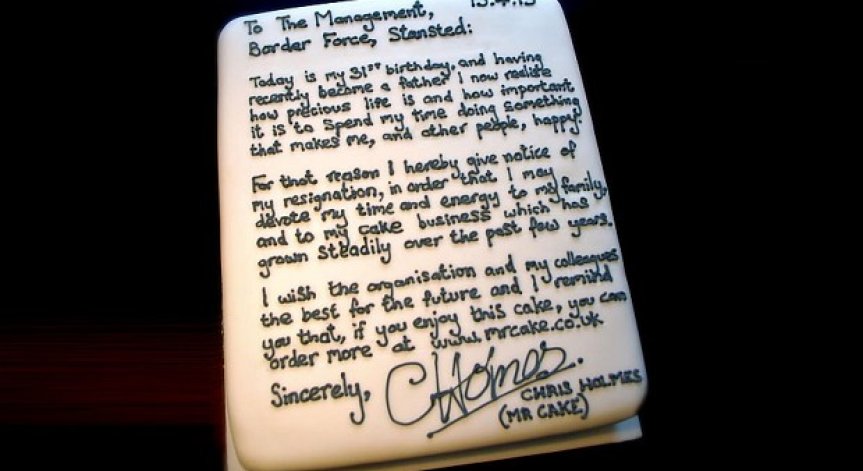 To The Management,
Border Force, Stansted:
Today is my 31st birthday, and having
recently become a father I now realise
how precious life is and how important
it is to spend my time doing something
that makes me, and other people, happy.
For that reason I hereby give notice of
my resignation, in order that I may
devote my time and energy to my family,
and to my cake business which has
grown steadily over the past few years.
I wish the organisation and my colleagues
the best for the future and I remind
you that, if you enjoy this cake, you can
order more at www.mrcake.co.uk
Sincerely, CHolmes.
CHRIS HOLMES
(MR CAKE)